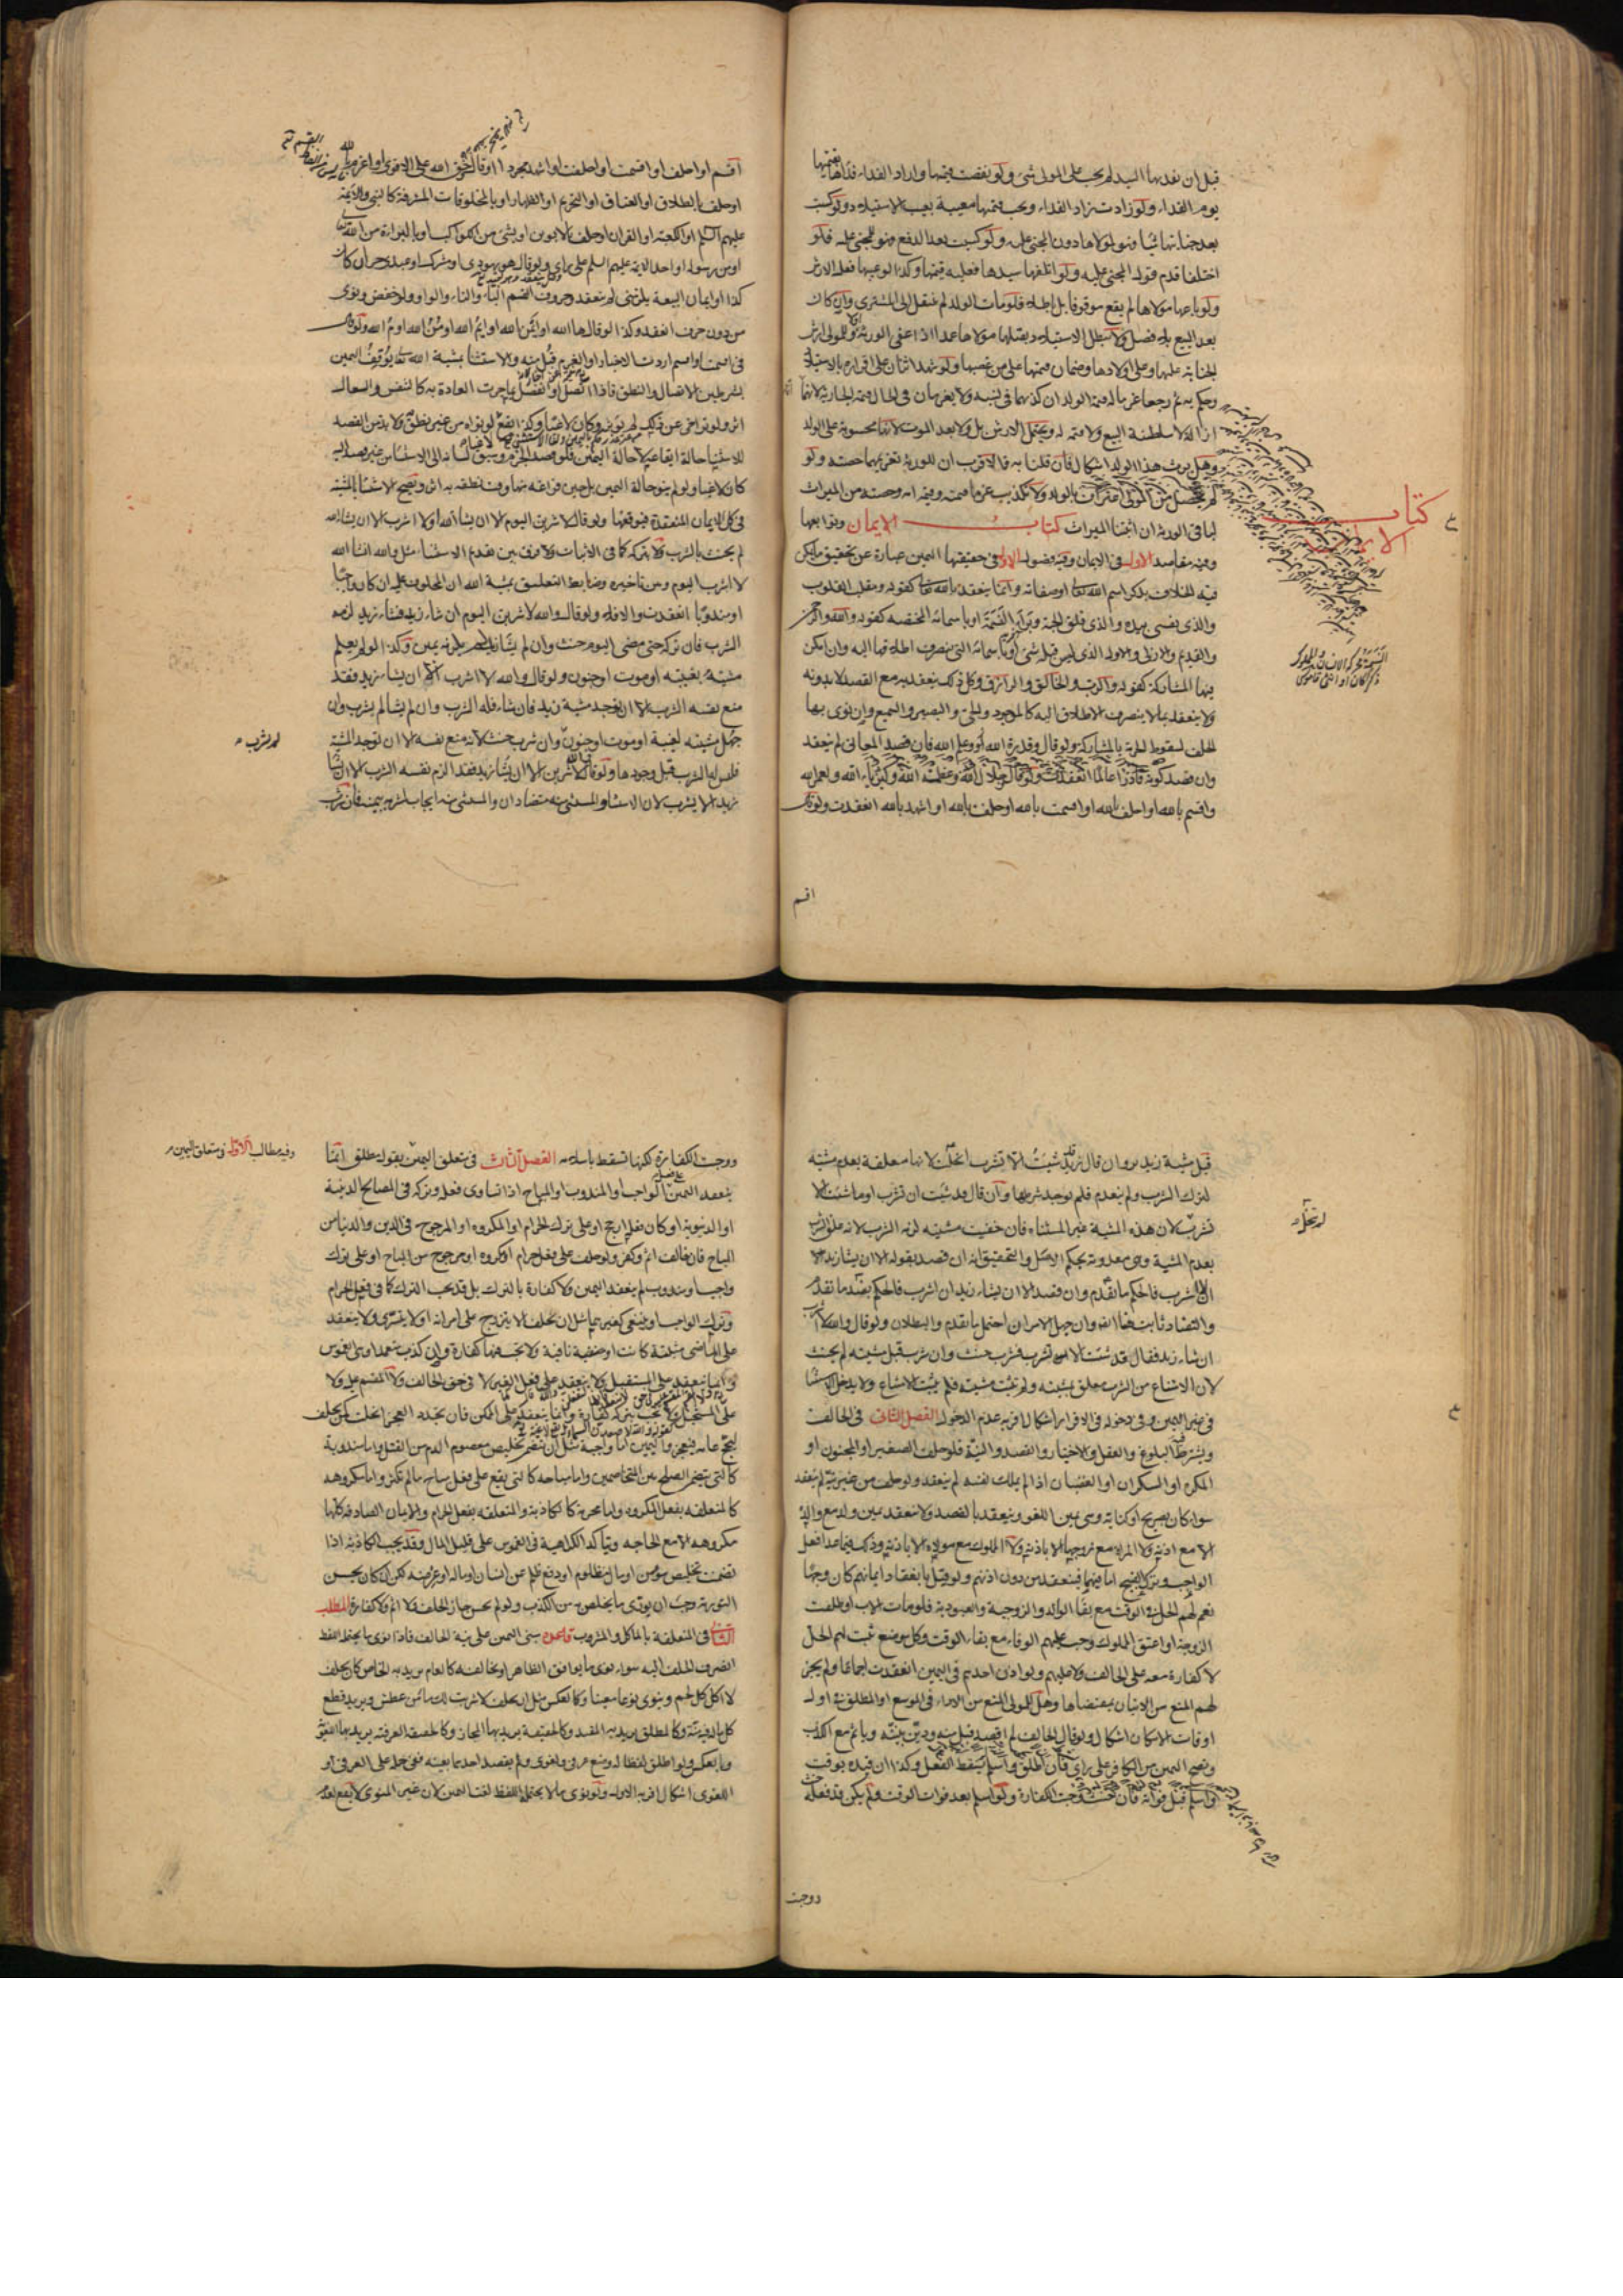 قبل ان يفديها السيد لم يجب على المولى شئ ولو نقصت قيمتها واراد الفداء فداها بقيمتها
يوم الفداء ولو زادت زاد الفداء ويجب قيمتها معيبة بعيب الاستيلاد ولو كسبت
بعد جنايتها شيئا فهو لمولاها دون المجنى عليه ولو كسبت بعد الدفع فهو للمجنى عليه فلو
اختلفا قدم قول المجنى عليه ولو اتلفها سيدها فعليه قيمتها وكذا لو عيبها فعليه الارش
ولو باعها مولاها لم يقع موقوفا بل باطلا فلو مات الولد لم ينتقل الى المشترى وان كان
بعد البيع بلا فصل ولا تبطل الاستيلاد بقتلها مولاها عمدا اذا عفى الورثة وللمولى ارش
الجناية عليها وعلى اولادها وضمان قيمتها على من غصبها ولو شهد اثنان على اقراره بالاستيلاد
وحكم به ثم رجعا غرما له قيمة الولد ان كذبهما في نسبه ولا يغرمان في الحال قيمة الجارية لانهما
ازالا سلطنة البيع ولا قيمة له ويحتمل الارش بل ولا بعد الموت لانها محسوبة على الولد
وهل يرث هذا الولد اشكال فان قلنا به فالاقرب ان للورثة تغريمهما حصته ولو
لم يحصل من المولى اعتراف بالولد ولا تكذيب غرما قيمته وقيمة امه وحصته من الميراث
لباقى الورثة ان اثبتنا الميراث كتاب الايمان وتوابعها
كتاب الايمان
وفيه مقاصد الاول في الايمان وفيه فصول الاول في حقيقتها اليمين عبارة عن تحقيق ما يمكن
فيه الخلاف بذكر اسم الله تعالى او صفاته وانما ينعقد بالله تعالى كقوله ومقلب القلوب
والذى نفسى بيده والذى فلق الحبة وبرأ النسمة او باسمائه المختصة كقوله والله والرحمن
والقديم والازلى والاول الذى ليس قبله شئ او باسمائه التى ينصرف اطلاقها اليه وان امكن
فيها المشاركة كقوله والرب والخالق والرازق وكل ذلك ينعقد به مع القصد لا بدونه
ولا ينعقد بما لا ينصرف الاطلاق اليه كالموجود والحى والبصير والسميع وان نوى بها
الحلف لسقوط الحرمة بالمشاركة ولو قال وقدرة الله او وعلم الله فان قصد المعانى لم ينعقد
وان قصد كونه قادرا عالما انعقدت ولو قال وجلال الله وعظمة الله وكبرياء الله ولعمر الله
واقسم بالله او احلف بالله او اقسمت بالله او حلفت بالله او اشهد بالله انعقدت ولو قال
اقسم
اقسم او احلف او اقسمت او احلفت او اشهد مجردا او قال وحق الله على الاقوى او اعزم بالله
او حلف بالطلاق او العتاق او التحريم او الظهار او بالمخلوقات المشرفة كالنبى والائمة
عليهم السلم او الكعبة او القران او حلف بالابوين او بشئ من الكواكب او بالبراءة من الله تعالى
او من رسوله او احد الائمة عليهم السلم على راى او قال هو يهودى او مشرك او عبده حر ان كان
كذا او ايمان البيعة يلزمنى لم ينعقد وحروف القسم الباء والتاء والواو ولو خفض ونوى
من دون حرف انعقد وكذا لو قال ها الله او ايمن الله او ايم الله او من الله او م الله ولو قال
فى اقسمت او اقسم اردت الاخبار او العزم قبل منه والاستثنا بمشية الله تعالى يوقف اليمين
بشرطين الاتصال والنطق فاذا اتصل او انفصل بما جرت العادة به كالتنفس والسعال
اثر ولو تراخى عن ذلك لم يؤثر وكان لاغيا وكذا يقع لو نواه من غير نطق ولا بد من القصد
للاستثناء حالة ايقاعه لا حالة اليمين فلو قصد الجزم وسبق لسانه الى الاستثناء من غير قصد اليه
كان لاغيا ولو لم ينو حالة اليمين بل حين فراغه منها وقت نطقه به اثر ويصح الاستثنا بالمشية
فى كل الايمان المنعقدة فيوقفها ولو قال لاشربن اليوم الا ان يشاء الله او لا اشرب الا ان يشاء الله
لم يحنث بالشرب ولا بتركه كما فى الاثبات ولا فرق بين تقديم الاستثناء مثل والله ان شاء الله
لا اشرب اليوم ومن تاخيره وضابط التعليق بمشية الله ان المحلوف عليه ان كان واجبا
او مندوبا انعقدت والا فلا ولو قال والله لاشربن اليوم ان شاء زيد فشاء زيد لزمه
الشرب فان تركه حتى مضى اليوم حنث وان لم يشأ زيد لم يلزمه يمين وكذا لو لم يعلم
مشيته بغيبته او موت او جنون ولو قال والله لا اشرب الا ان يشاء زيد فقد
منع نفسه الشرب الا ان يوجد مشية زيد فان شاء فله الشرب وان لم يشأ لم يشرب وان
جهل مشيته لغيبة او موت او جنون وان شرب حنث لانه منع نفسه الا ان توجد المشية
لم يشرب
فليس له الشرب قبل وجودها ولو قال والله لاشربن الا ان يشاء زيد فقد الزم نفسه الشرب الا ان يشاء
زيد ان لا يشرب لان الاستثنا والمستثنى منه متضادان والمستثنى منه ايجاب لشربه بيمينه فان شرب
قبل مشية زيد بر وان قال زيد قد شئت ان لا تشرب انحلت لانها معلقة بعدم مشيته
لترك الشرب ولم ينعدم فلم يوجد شرطها وان قال قد شئت ان تشرب او ما شئت ان لا
تشرب لم تنحل لان هذه المشية غير المستثناة فان خفيت مشيته لزمه الشرب لانه علق الشرب
بعدم المشية وهى معدومة بحكم الاصل والتحقيق انه ان قصد بقوله الا ان يشاء زيد ان لا
اشرب فالحكم ما تقدم وان قصد الا ان يشاء زيد ان اشرب فالحكم بضد ما تقدم
والتضاد ثابت هنا ايضا وان جهل الامران احتمل ما تقدم والبطلان ولو قال والله لا اشرب
ان شاء زيد فقال قد شئت الا تشرب فشرب حنث وان شرب قبل مشيته لم يحنث
لان الامتناع من الشرب معلق بمشيته ولم تثبت مشيته فلم يثبت الامتناع ولا يدخل الاستثنا
فى غير اليمين وفى دخوله فى الاقرار اشكال اقربه عدم الدخول الفصل الثانى فى الحالف
ويشترط فيه البلوغ والعقل والاختيار والقصد والنية فلو حلف الصغير او المجنون او
المكره او السكران او الغضبان اذا لم يملك نفسه لم ينعقد ولو حلف من غير نية لم ينعقد
سواء كان بصريح او كناية وهى يمين اللغو وينعقد بالقصد ولا ينعقد يمين ولد مع والده
الا مع اذنه ولا المراة مع زوجها الا باذنه ولا المملوك مع مولاه الا باذنه وذلك فيما عدا فعل
الواجب وترك القبيح اما فيهما فينعقد من دون اذنهم ولو قيل بانعقاد ايمانهم كان وجها
نعم لهم الحل فى الوقت مع بقاء الوالد والزوجية والعبودية فلو مات الاب او طلقت
الزوجة او اعتق المملوك وجب عليهم الوفاء مع بقاء الوقت وكل موضع ثبت لهم الحل
لا كفارة معه على الحالف ولا عليهم ولو اذن احدهم فى اليمين انعقدت اجماعا ولم يجز
لهم المنع من الاتيان بمقتضاها وهل للمولى المنع من الاداء فى الموسع او المطلق فى اول
اوقات الامكان اشكال ولو قال الحالف لم اقصد قبل منه ودين بنيته وياثم مع الكذب
ويصح اليمين من الكافر على راى فان اطلق واسلم لم يسقط الفعل وكذا ان قيده بوقت
واسلم قبل فواته فان حنث وجبت الكفارة ولو اسلم بعد فوات الوقت ولم يكن قد فعله
ووجبت
ووجبت الكفارة لكنها تسقط باسلامه الفصل الثالث فى متعلق اليمين بقول مطلق انما
وفيه مطالب الاول فى متعلق اليمين
ينعقد اليمين على فعل الواجب او المندوب او المباح اذا تساوى فعله وتركه فى المصالح الدينية
او الدنيوية او كان فعله ارجح او على ترك الحرام او المكروه او المرجوح فى الدين والدنيا من
المباح فان خالف اثم وكفر ولو حلف على فعل حرام او مكروه او مرجوح من المباح او على ترك
واجب او مندوب لم ينعقد اليمين ولا كفارة بالترك بل قد يجب الترك كما فى فعل الحرام
وترك الواجب او ينبغى كغيرهما مثل ان يحلف لا يتزوج على امراته او لا يتسرى ولا ينعقد
على الماضى مثبتة كانت او منفية نافية ولا تجب فيها كفارة وان كذب متعمدا وهى الغموس
وانما ينعقد على المستقبل ولا ينعقد على فعل الغير لا فى حق الحالف ولا المقسم عليه ولا
على المستحيل ولا تجب بتركه كفارة وانما ينعقد على الممكن فان تجدد العجز انحلت كمن يحلف
ليحج عامه فيعجز واليمين اما واجبة مثل ان تتضمن تخليص معصوم الدم من القتل واما مندوبة
كالتى تتضمن الصلح بين المتخاصمين واما مباحة كالتى يقع على فعل مباح ما لم تكثر واما مكروهة
كالمتعلقة بفعل المكروه واما محرمة كالكاذبة والمتعلقة بفعل الحرام والايمان الصادقة كلها
مكروهة الا مع الحاجة ويتاكد الكراهية فى الغموس على قليل المال وقد يجب الكاذبة اذا
تضمنت تخليص مؤمن او مال مظلوم او دفع ظلم عن انسان او ماله او عرضه لكن ان كان يحسن
التورية وجب ان يورى ما يخلص به من الكذب ولو لم يحسن جاز الحلف ولا اثم ولا كفارة المطلب
الثانى فى المتعلقة بالماكل والمشروب قاعدة مبنى اليمين على نية الحالف فاذا نوى ما يحتمله اللفظ
انصرف الحلف اليه سواء نوى ما يوافق الظاهر او يخالفه كالعام يريد به الخاص كان يحلف
لا اكل كل لحم وينوى نوعا معينا وكالعكس مثل ان يحلف لا شربت لك ماء من عطش ويريد قطع
كل ماله فيه منة وكالمطلق يريد به المقيد وكالحقيقة يريد بها المجاز وكالحقيقة العرفية يريد بها اللغوية
وبالعكس ولو اطلق لفظا له وضع عرفى ولغوى ولم يقصد احدهما بعينه ففى حمله على العرفى او
اللغوى اشكال اقربه الاول ولو نوى ما لا يحتمله اللفظ لغت اليمين لان غير المنوى لا يقع لعدم